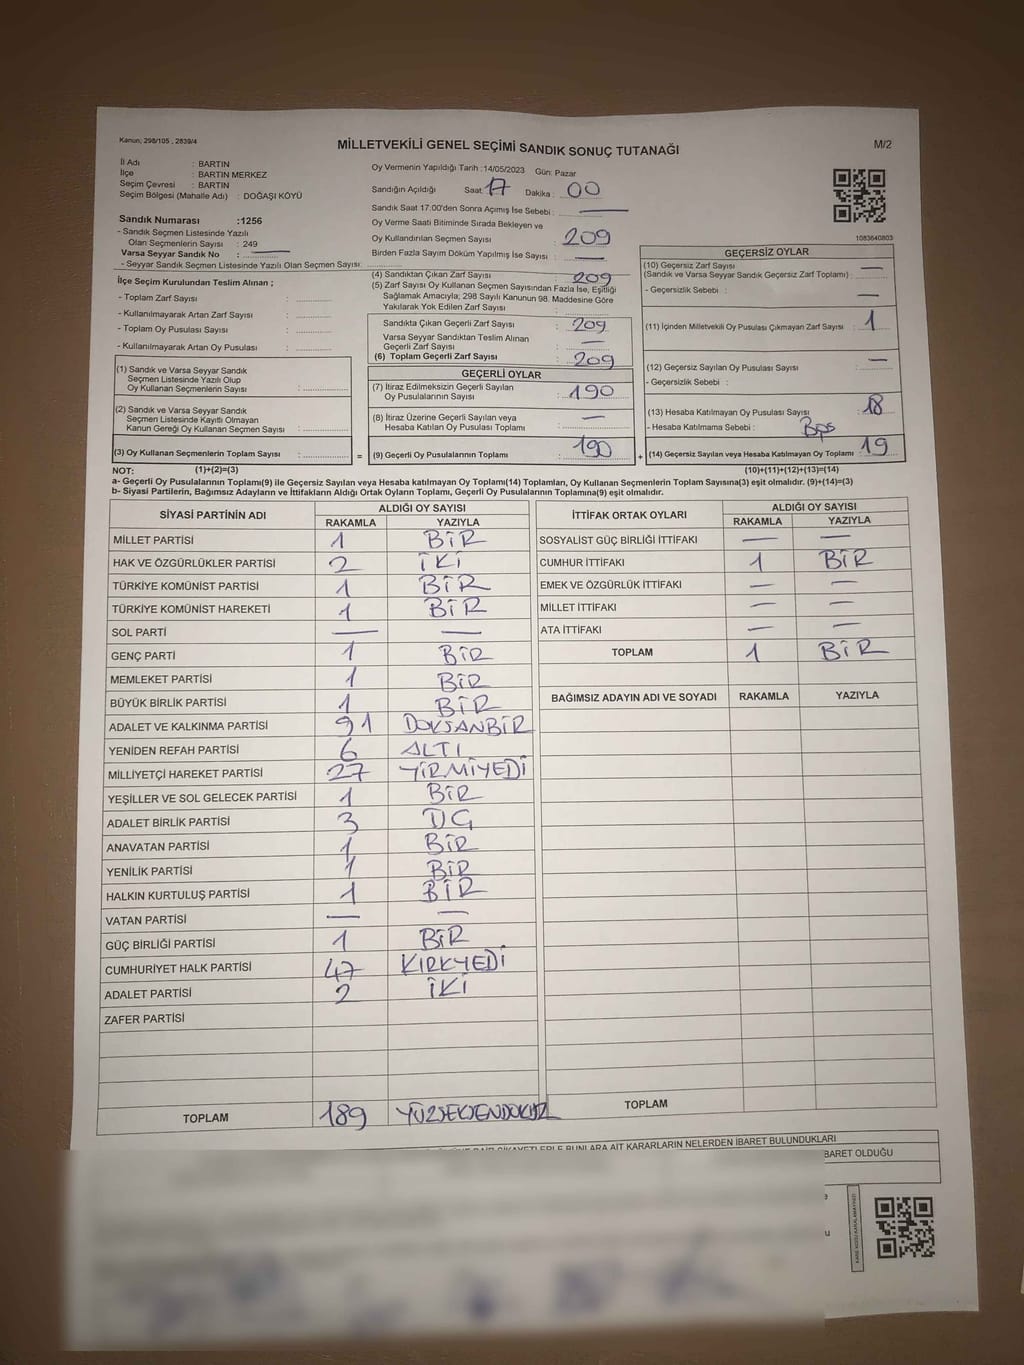 Kanun; 298/105 , 2839/4
MİLLETVEKİLİ GENEL SEÇİMİ SANDIK SONUÇ TUTANAĞI
M/2
İl Adı : BARTIN
İlçe : BARTIN MERKEZ
Seçim Çevresi : BARTIN
Seçim Bölgesi (Mahalle Adı) : DOĞAŞI KÖYÜ
Sandık Numarası :1256
- Sandık Seçmen Listesinde Yazılı
Olan Seçmenlerin Sayısı : 249
Varsa Seyyar Sandık No : —
- Seyyar Sandık Seçmen Listesinde Yazılı Olan Seçmen Sayısı:
İlçe Seçim Kurulundan Teslim Alınan ;
- Toplam Zarf Sayısı :
- Kullanılmayarak Artan Zarf Sayısı :
- Toplam Oy Pusulası Sayısı :
- Kullanılmayarak Artan Oy Pusulası :
(1) Sandık ve Varsa Seyyar Sandık
Seçmen Listesinde Yazılı Olup
Oy Kullanan Seçmenlerin Sayısı :
(2) Sandık ve Varsa Seyyar Sandık
Seçmen Listesinde Kayıtlı Olmayan
Kanun Gereği Oy Kullanan Seçmen Sayısı :
(3) Oy Kullanan Seçmenlerin Toplam Sayısı : =
Oy Vermenin Yapıldığı Tarih :14/05/2023 Gün: Pazar
Sandığın Açıldığı Saat 17 Dakika : 00
Sandık Saat 17:00'den Sonra Açımış İse Sebebi : —
Oy Verme Saati Bitiminde Sırada Bekleyen ve
Oy Kullandırılan Seçmen Sayısı : 209
Birden Fazla Sayım Döküm Yapılmış İse Sayısı : —
(4) Sandıktan Çıkan Zarf Sayısı : 209
(5) Zarf Sayısı Oy Kullanan Seçmen Sayısından Fazla İse, Eşitliği
Sağlamak Amacıyla; 298 Sayılı Kanunun 98. Maddesine Göre
Yakılarak Yok Edilen Zarf Sayısı :
Sandıkta Çıkan Geçerli Zarf Sayısı : 209
Varsa Seyyar Sandıktan Teslim Alınan
Geçerli Zarf Sayısı : —
(6) Toplam Geçerli Zarf Sayısı : 209
GEÇERLİ OYLAR
(7) İtiraz Edilmeksizin Geçerli Sayılan
Oy Pusulalarının Sayısı : 190
(8) İtiraz Üzerine Geçerli Sayılan veya
Hesaba Katılan Oy Pusulası Toplamı : —
(9) Geçerli Oy Pusulalarının Toplamı : 190 +
1083640803
GEÇERSİZ OYLAR
(10) Geçersiz Zarf Sayısı —
(Sandık ve Varsa Seyyar Sandık Geçersiz Zarf Toplamı) :
- Geçersizlik Sebebi : —
(11) İçinden Milletvekili Oy Pusulası Çıkmayan Zarf Sayısı : 1
(12) Geçersiz Sayılan Oy Pusulası Sayısı : —
- Geçersizlik Sebebi :
(13) Hesaba Katılmayan Oy Pusulası Sayısı : 18
- Hesaba Katılmama Sebebi :
(14) Geçersiz Sayılan veya Hesaba Katılmayan Oy Toplamı : 19
NOT: (1)+(2)=(3) (10)+(11)+(12)+(13)=(14)
a- Geçerli Oy Pusulasının Toplamı(9) ile Geçersiz Sayılan veya Hesaba katılmayan Oy Toplamı(14) Toplamları, Oy Kullanan Seçmenlerin Toplam Sayısına(3) eşit olmalıdır. (9)+(14)=(3)
b- Siyasi Partilerin, Bağımsız Adayların ve İttifakların Aldığı Ortak Oyların Toplamı, Geçerli Oy Pusulalarının Toplamına(9) eşit olmalıdır.
SİYASİ PARTİNİN ADI ALDIĞI OY SAYISI
RAKAMLA YAZIYLA
MİLLET PARTİSİ 1 BİR
HAK VE ÖZGÜRLÜKLER PARTİSİ 2 İKİ
TÜRKİYE KOMÜNİST PARTİSİ 1 BİR
TÜRKİYE KOMÜNİST HAREKETİ 1 BİR
SOL PARTİ — —
GENÇ PARTİ 1 BİR
MEMLEKET PARTİSİ 1 BİR
BÜYÜK BİRLİK PARTİSİ 1 BİR
ADALET VE KALKINMA PARTİSİ 91 DOKSANBİR
YENİDEN REFAH PARTİSİ 6 ALTI
MİLLİYETÇİ HAREKET PARTİSİ 27 YİRMİYEDİ
YEŞİLLER VE SOL GELECEK PARTİSİ 1 BİR
ADALET BİRLİK PARTİSİ 3 ÜÇ
ANAVATAN PARTİSİ 1 BİR
YENİLİK PARTİSİ 1 BİR
HALKIN KURTULUŞ PARTİSİ 1 BİR
VATAN PARTİSİ — —
GÜÇ BİRLİĞİ PARTİSİ 1 BİR
CUMHURİYET HALK PARTİSİ 47 KIRKYEDİ
ADALET PARTİSİ 2 İKİ
ZAFER PARTİSİ
TOPLAM 189 YÜZSEKSENDOKUZ
İTTİFAK ORTAK OYLARI ALDIĞI OY SAYISI
RAKAMLA YAZIYLA
SOSYALİST GÜÇ BİRLİĞİ İTTİFAKI — —
CUMHUR İTTİFAKI 1 BİR
EMEK VE ÖZGÜRLÜK İTTİFAKI — —
MİLLET İTTİFAKI — —
ATA İTTİFAKI — —
TOPLAM 1 BİR
BAĞIMSIZ ADAYIN ADI VE SOYADI RAKAMLA YAZIYLA
TOPLAM
BUNLARA AİT KARARLARIN NELERDEN İBARET BULUNDUKLARI
BARET OLDUĞU